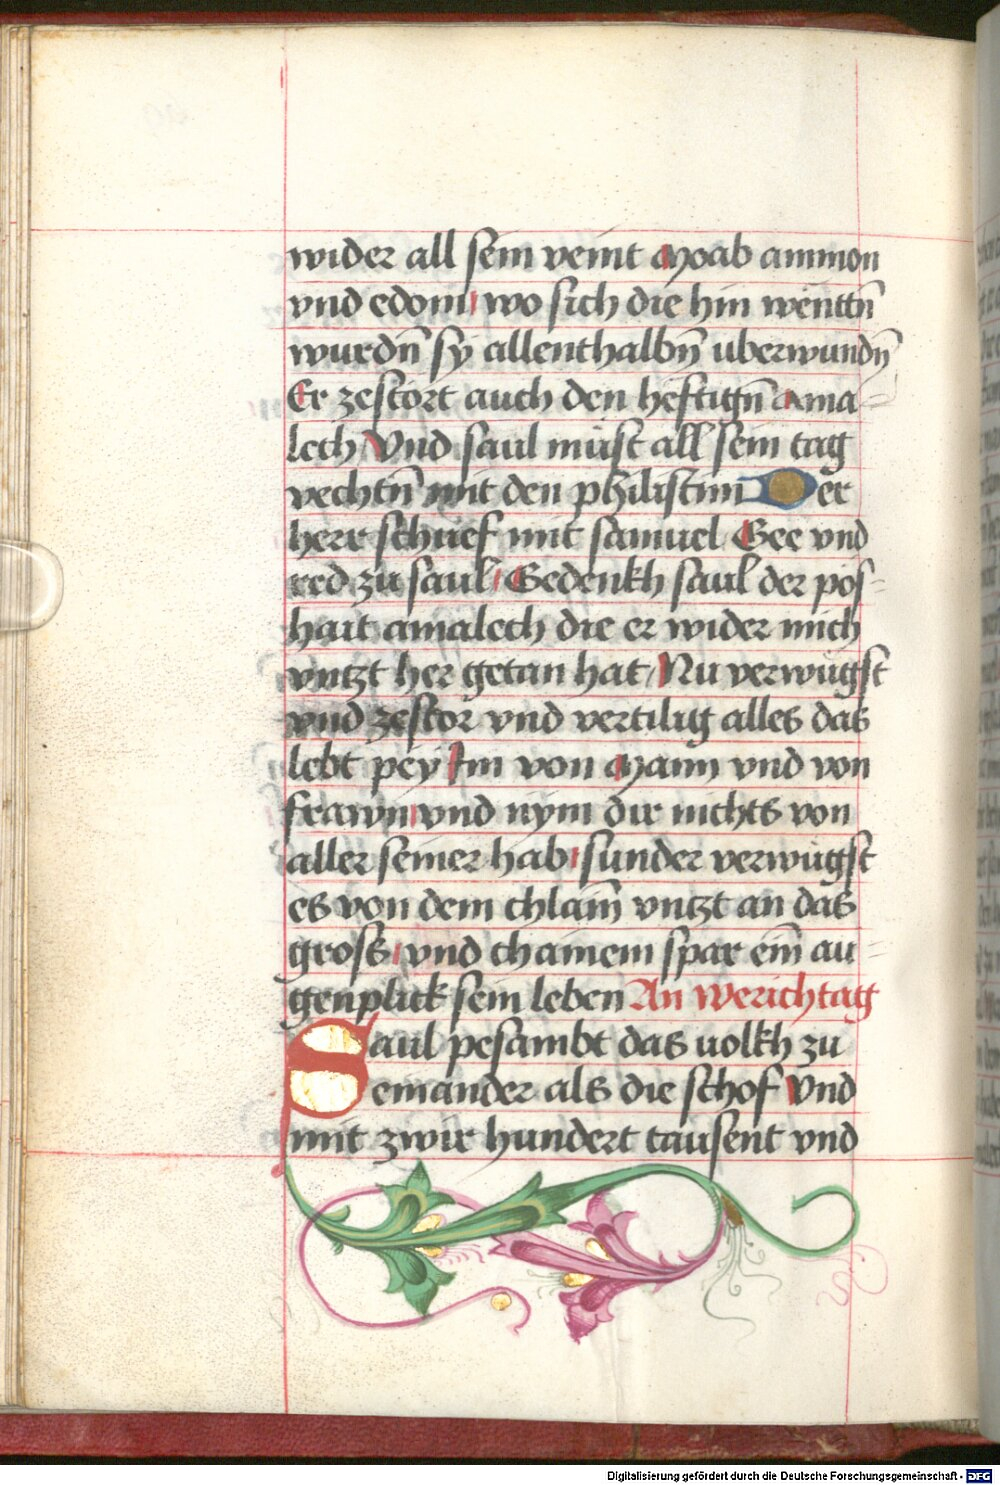 wider all sein veint Moab ammon
vnd edom wo sich die hin wenttn̄
wurdn̄ sy allenthalbn̄ uberwundn̄
Er zestört auch den heftign̄ Ama
lech Vnd saul müst all sein tag
vechtn̄ mit den philistim Der
herr schuef mit samuel Gee vnd
red zu saul Gedenkh saul der pos-
hait amalech die er wider mich
vntzt her getan hat Nu verwügst
vnd zestor vnd vertilig alles das
lebt pey Im von Mann vnd von
frawn vnd nym dir nichts von
aller seiner hab sunder verwügst
es von dem chlain̄ vntzt an das
gross vnd chainem spar ein̄ au=
genplick sein leben An werichtag
Saul pesambt das uolkh zu
einander als die schof Vnd
mit zwir hundert tausent vnd
Digitalisierung gefördert durch die Deutsche Forschungsgemeinschaft - DFG